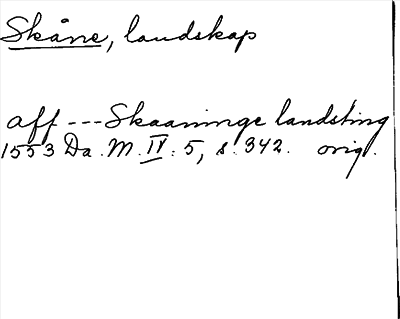 Skåne, landskap
aff --- Skaaninge landsting
1553 Da. M. IV: 5, s. 342. orig.